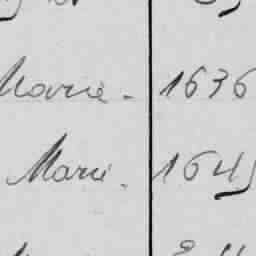 Marie - 1636
Marie. 1645